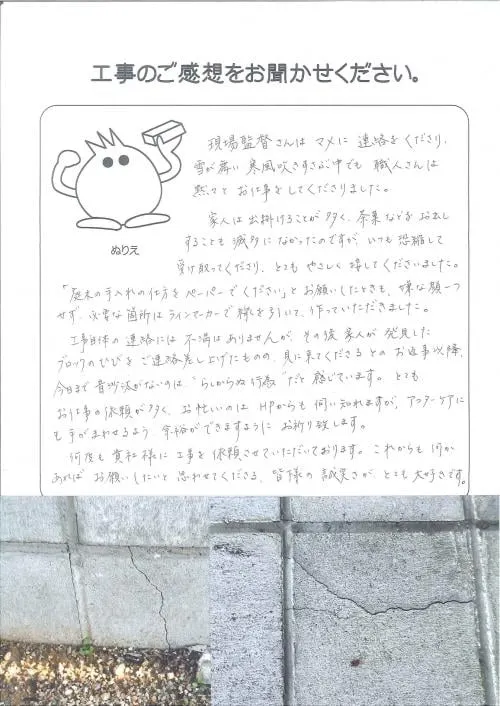 工事のご感想をお聞かせください。
ぬりえ
現場監督さんは マメに 連絡をくださり、
雪が舞い 寒風吹きすさぶ中でも 職人さんは
黙々と お仕事をしてくださりました。
家人は出掛けることが多く、茶菓などをお出し
することも 滅多になかったのですが、いつも恐縮して
受け取ってくださり、とても やさしく 接してくださいました。
「庭木の手入れの仕方をペーパーでください」とお願いしたときも、嫌な顔一つ
せず、必要な箇所はラインマーカーで線を引いて、作っていただきました。
工事自体の連絡には 不満はありませんが、その後 家人が発見した
ブロックのひびを ご連絡差し上げたものの、見に来てくださるとの お返事以降、
今日まで音沙汰がないのは "らしからぬ行為" だと 感じています。とても
お仕事の依頼が多く、お忙しいのは HPからも 伺い知れますが、アフターケアに
も手がまわせるよう、余裕ができますように お祈り致します。
何度も貴社様に 工事を依頼させていただいております。これからも何か
あれば お願いしたいと 思わせてくださる、皆様の 誠実さが、とても 大好きです。